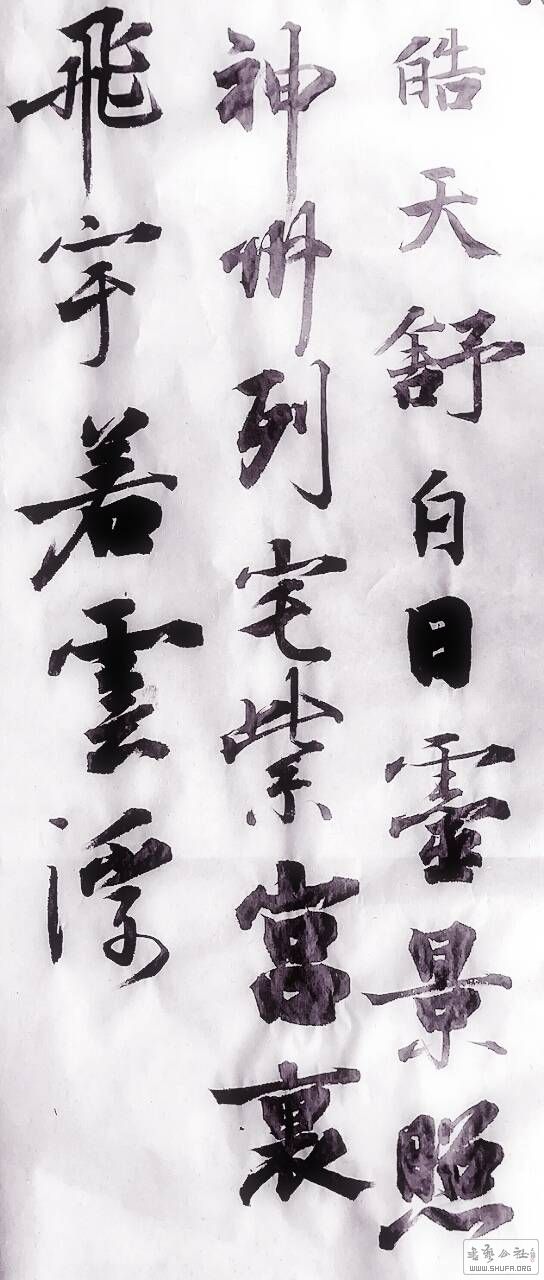 皓天舒白日靈景照
神州列宅紫宫裏
飛宇若雲浮
書藝公社
WWW.SHUFA.ORG